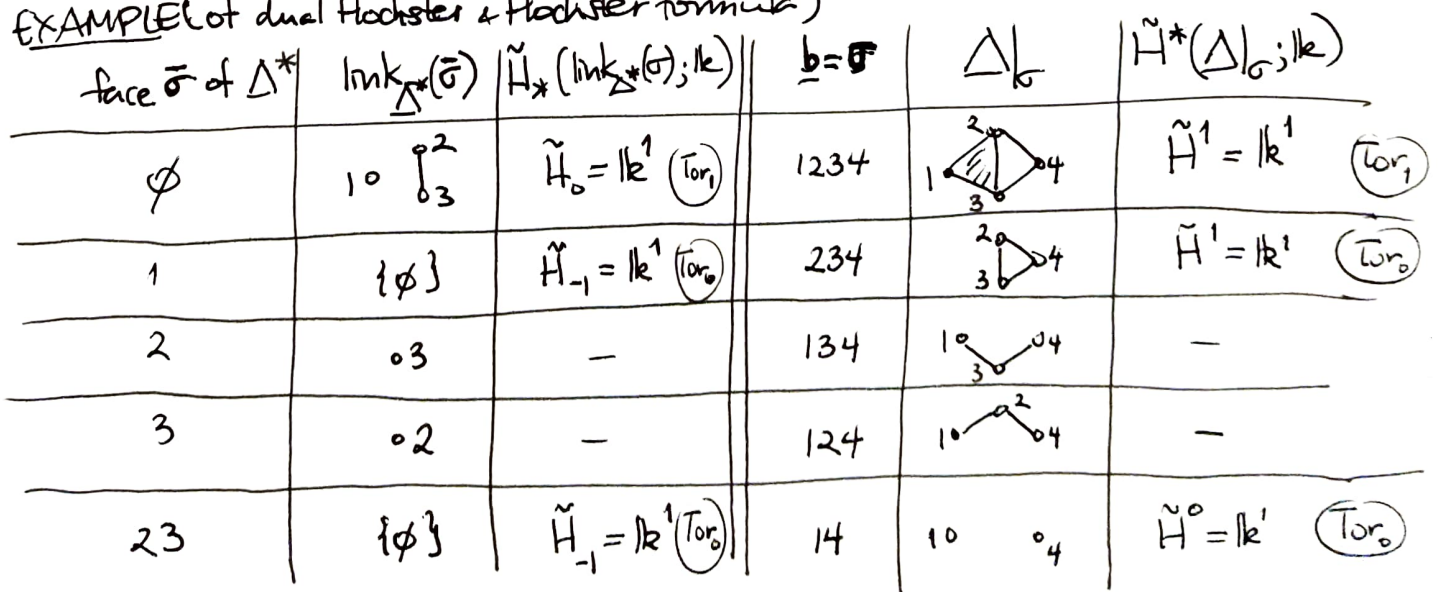 EXAMPLE (of dual Hochster & Hochster formula)
face σ̄ of Δ* | link_Δ*(σ̄) | H̃_*(link_Δ*(σ̄); 𝕜) | b = σ | Δ|_σ | H̃*(Δ|_σ; 𝕜)
∅ | 1 2 3 | H̃_0 = 𝕜^1 Tor_1 | 1234 | 1 2 3 4 | H̃^1 = 𝕜^1 Tor_1
1 | {∅} | H̃_-1 = 𝕜^1 Tor_0 | 234 | 2 3 4 | H̃^1 = 𝕜^1 Tor_0
2 | 3 | – | 134 | 1 3 4 | –
3 | 2 | – | 124 | 1 2 4 | –
23 | {∅} | H̃_-1 = 𝕜^1 Tor_0 | 14 | 1 4 | H̃^0 = 𝕜^1 Tor_0